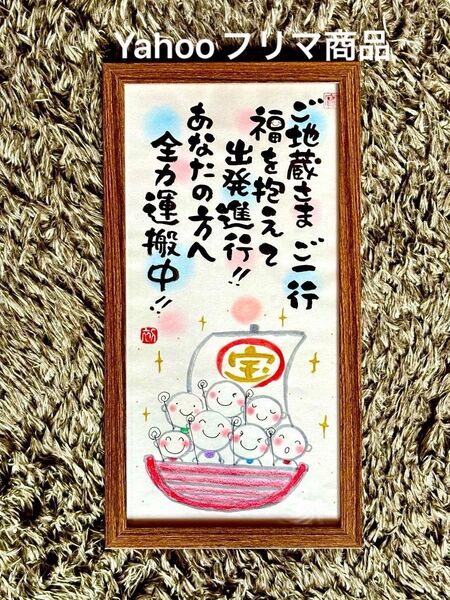 Yahooフリマ商品
ご地蔵さま ご一行
福を抱えて
出発進行!!
あなたの方へ
全力運搬中!!
宝